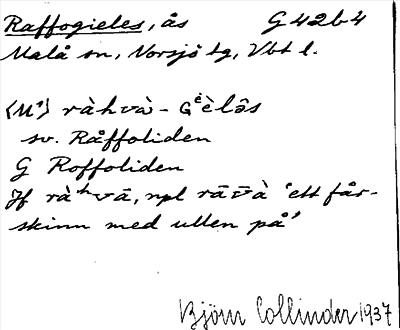 Raffogieles, ås G42b4
Malå sn, Norsjö tg, Vbt l.
⟨M¹⟩ ràhvà - Gèlås
sv. Råffoliden
G Roffoliden
Jf ràʰvā, npl rāv̄à 'ett får-
skinn med ullen på'
Björn Collinder 1937